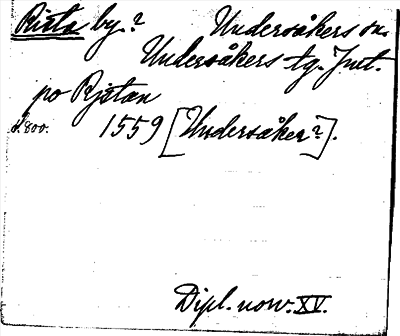 Rista by.? Undersåkers sn.
Undersåkers tg. Jmtl.
po Ristan
d. 800. 1559 [Undersåker?].
Dipl. norv. XV.